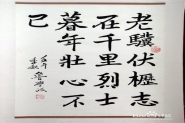 老驥伏櫪志
在千里烈士
暮年壮心不
已